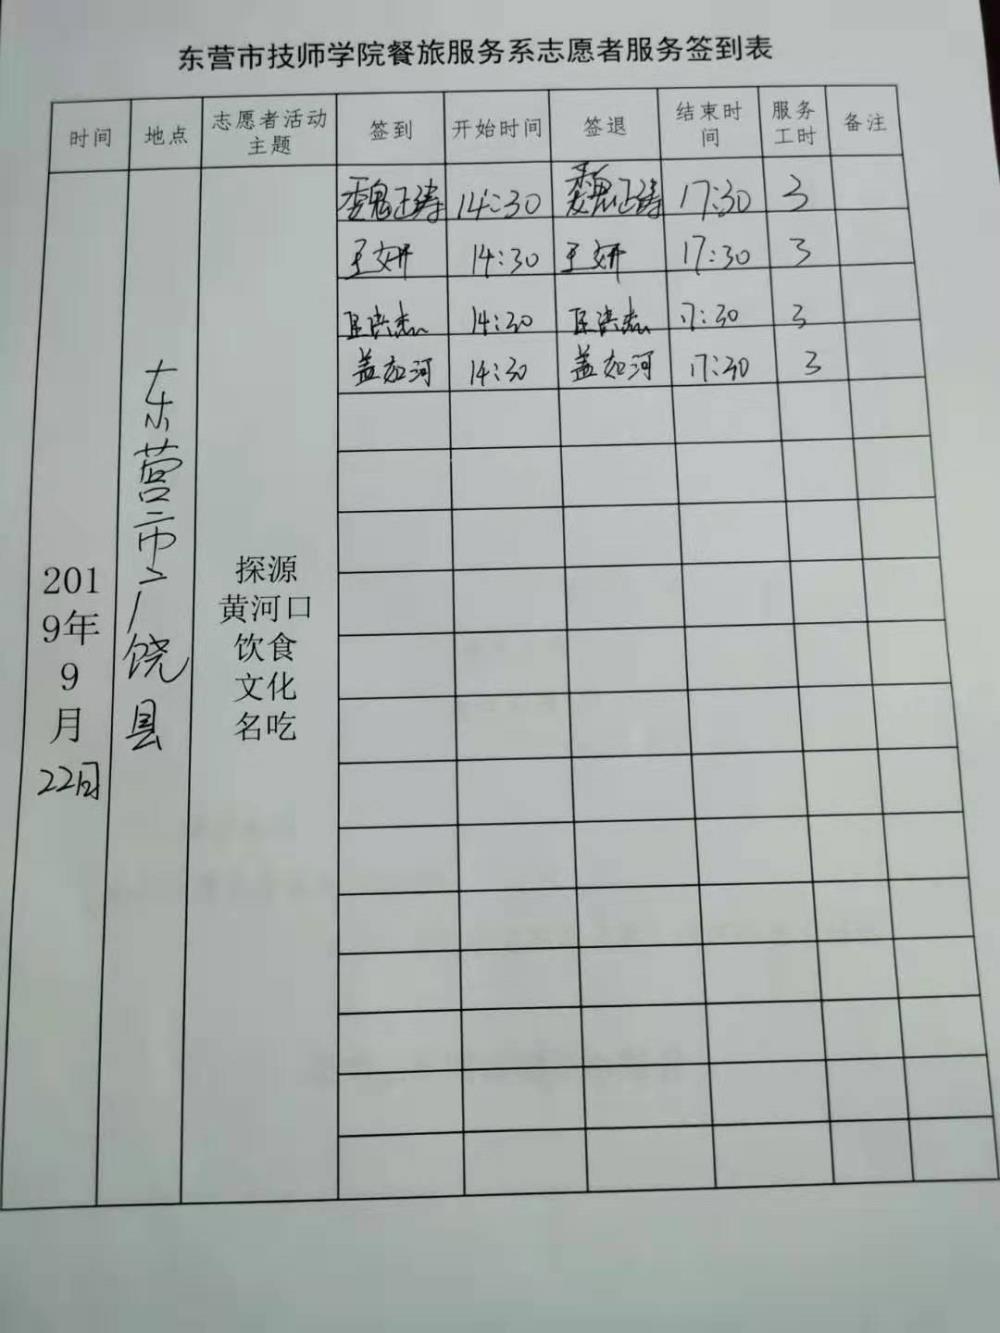 东营市技师学院餐旅服务系志愿者服务签到表
时间 地点 志愿者活动 签到 开始时间 签退 结束时 服务 备注
主题 间 工时
魏正涛 14:30 魏正涛 17:30 3
王妍 14:30 王妍 17:30 3
14:30 17:30 3
盖如河 14:30 盖如河 17:30 3
201
9年
9
月
22日
东营市广饶县
探源
黄河口
饮食
文化
名吃